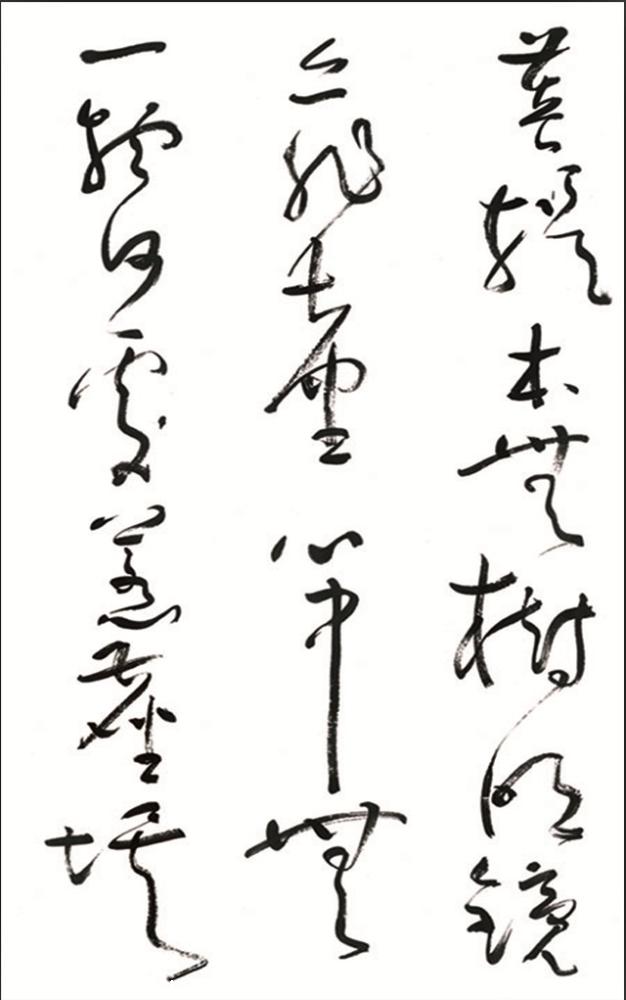 菩提本無樹明鏡
亦非臺心中無
一物何處惹塵埃